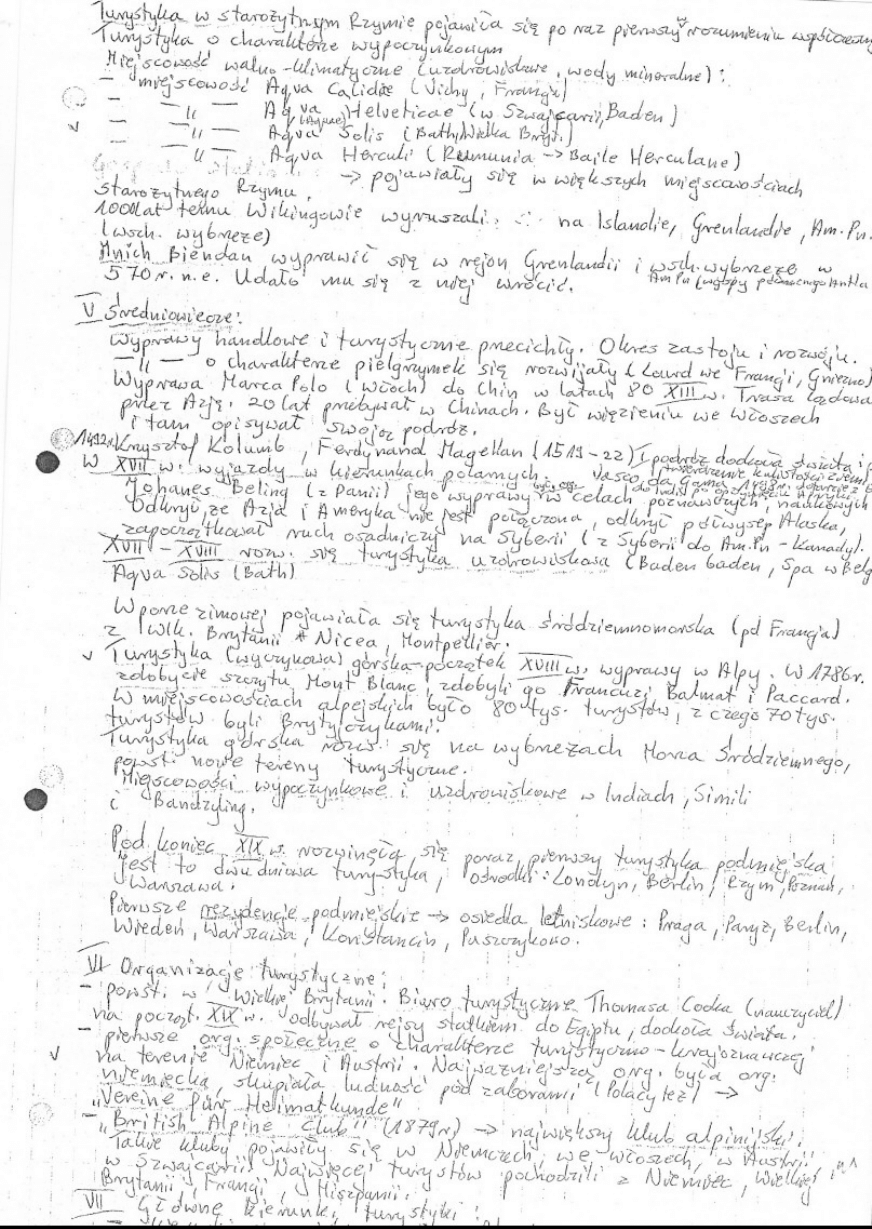 Turystyka w starożytnym Rzymie pojawiła się po raz pierwszy w rozumieniu współczesny
Turystyka o charakterze wypoczynkowym
Miejscowość walno-klimatyczne (uzdrowiskowe, wody mineralne):
- miejscowość Aqva Calidae (Vichy, Francja)
- —"— Aqva (Aquae) Helveticae (w Szwajcarii, Baden)
- —"— Aqva Solis (Bath, Wielka Bryt.)
- —"— Aqva Herculi (Rumunia → Baile Herculane)
→ pojawiały się w większych miejscowościach
starożytnego Rzymu
1000 lat temu Wikingowie wyruszali na Islandie, Grenlandie, Am. Pn.
(wsch. wybrzeże)
Mnich Biendan wyprawić się w rejon Grenlandii i wsch. wybrzeże w
570 r. n.e. Udało mu się z niej wrócić. Am Pn (wyspy północnego Antla
V Średniowiecze:
Wyprawy handlowe i turystyczne przycichły. Okres zastoju i rozwoju.
—"— o charakterze pielgrzymek się rozwijały (Lourd we Francji, Gniezno)
Wyprawa Marca Polo (Włoch) do Chin w latach 80 XIII w. Trasa lądowa
przez Azję. 20 lat przebywał w Chinach. Był więzieniu we Włoszech
i tam opisywał swoją podróż.
1492r. Krzysztof Kolumb, Ferdynand Magellan (1519-22) I podróż dookoła świata i p
W XVII w. wyjazdy w kierunkach polarnych. Vasco da Gama 1498r.
Johanes Bering (z Danii) jego wyprawy w celach poznawczych, naukowych
Odkrył, że Azja i Ameryka nie jest połączona, odkrył półwysep Alaska,
zapoczątkował ruch osadniczy na Syberii (z Syberii do Am. Pn - Kanady).
XVII - XVIII rozw. się turystyka uzdrowiskowa (Baden baden, Spa w Belg
Aqva Solis (Bath)
W porze zimowej pojawiała się turystyka śródziemnomorska (pd Francja)
z Wlk. Brytanii * Nicea, Montpellier.
Turystyka (wyczynkowa) górska - początek XVIII w. wyprawy w Alpy. W 1786r.
zdobycie szczytu Mont Blanc, zdobyli go Francuzi Balmat i Paccard.
W miejscowościach alpejskich było 80 tys. turystów, z czego 70 tys.
turystów byli Brytyjczykami.
Turystyka górska rozw. się na wybrzeżach Morza Śródziemnego,
powst. nowe tereny turystyczne.
Miejscowości wypoczynkowe i uzdrowiskowe w Indiach, Simili
i Bandżyling.
Pod koniec XIX w. rozwinęła się poraz pierwszy turystyka podmiejska
Jest to dwudniowa turystyka, ośrodki: Londyn, Berlin, Rzym, Poznań,
Warszawa.
Pierwsze rezydencje podmiejskie → osiedla letniskowe: Praga, Paryż, Berlin,
Wiedeń, Warszawa, Konstancin, Puszczykowo.
VI Organizacje turystyczne:
- powst. w Wielkiej Brytanii. Biuro turystyczne Thomasa Cooka (nauczyciel)
na początk. XIX w. odbywał rejsy statkiem do Egiptu, dookoła świata.
- pierwsze org. społeczne o charakterze turystyczno-krajoznawczej
na terenie Niemiec i Austrii. Najważniejszą org. była org.
niemiecka, skupiała ludność pod zaborami (Polacy też) →
"Vereine für Heimatkunde"
- "British Alpine Club" (1879r) → największy klub alpinijski.
Takie kluby pojawiły się w Niemczech, we Włoszech, w Austrii
w Szwajcarii. Najwięcej turystów pochodzili z Niemiec, Wielkiej
Brytanii, Francji, Hiszpanii.
VII Główne kierunki turystyki: